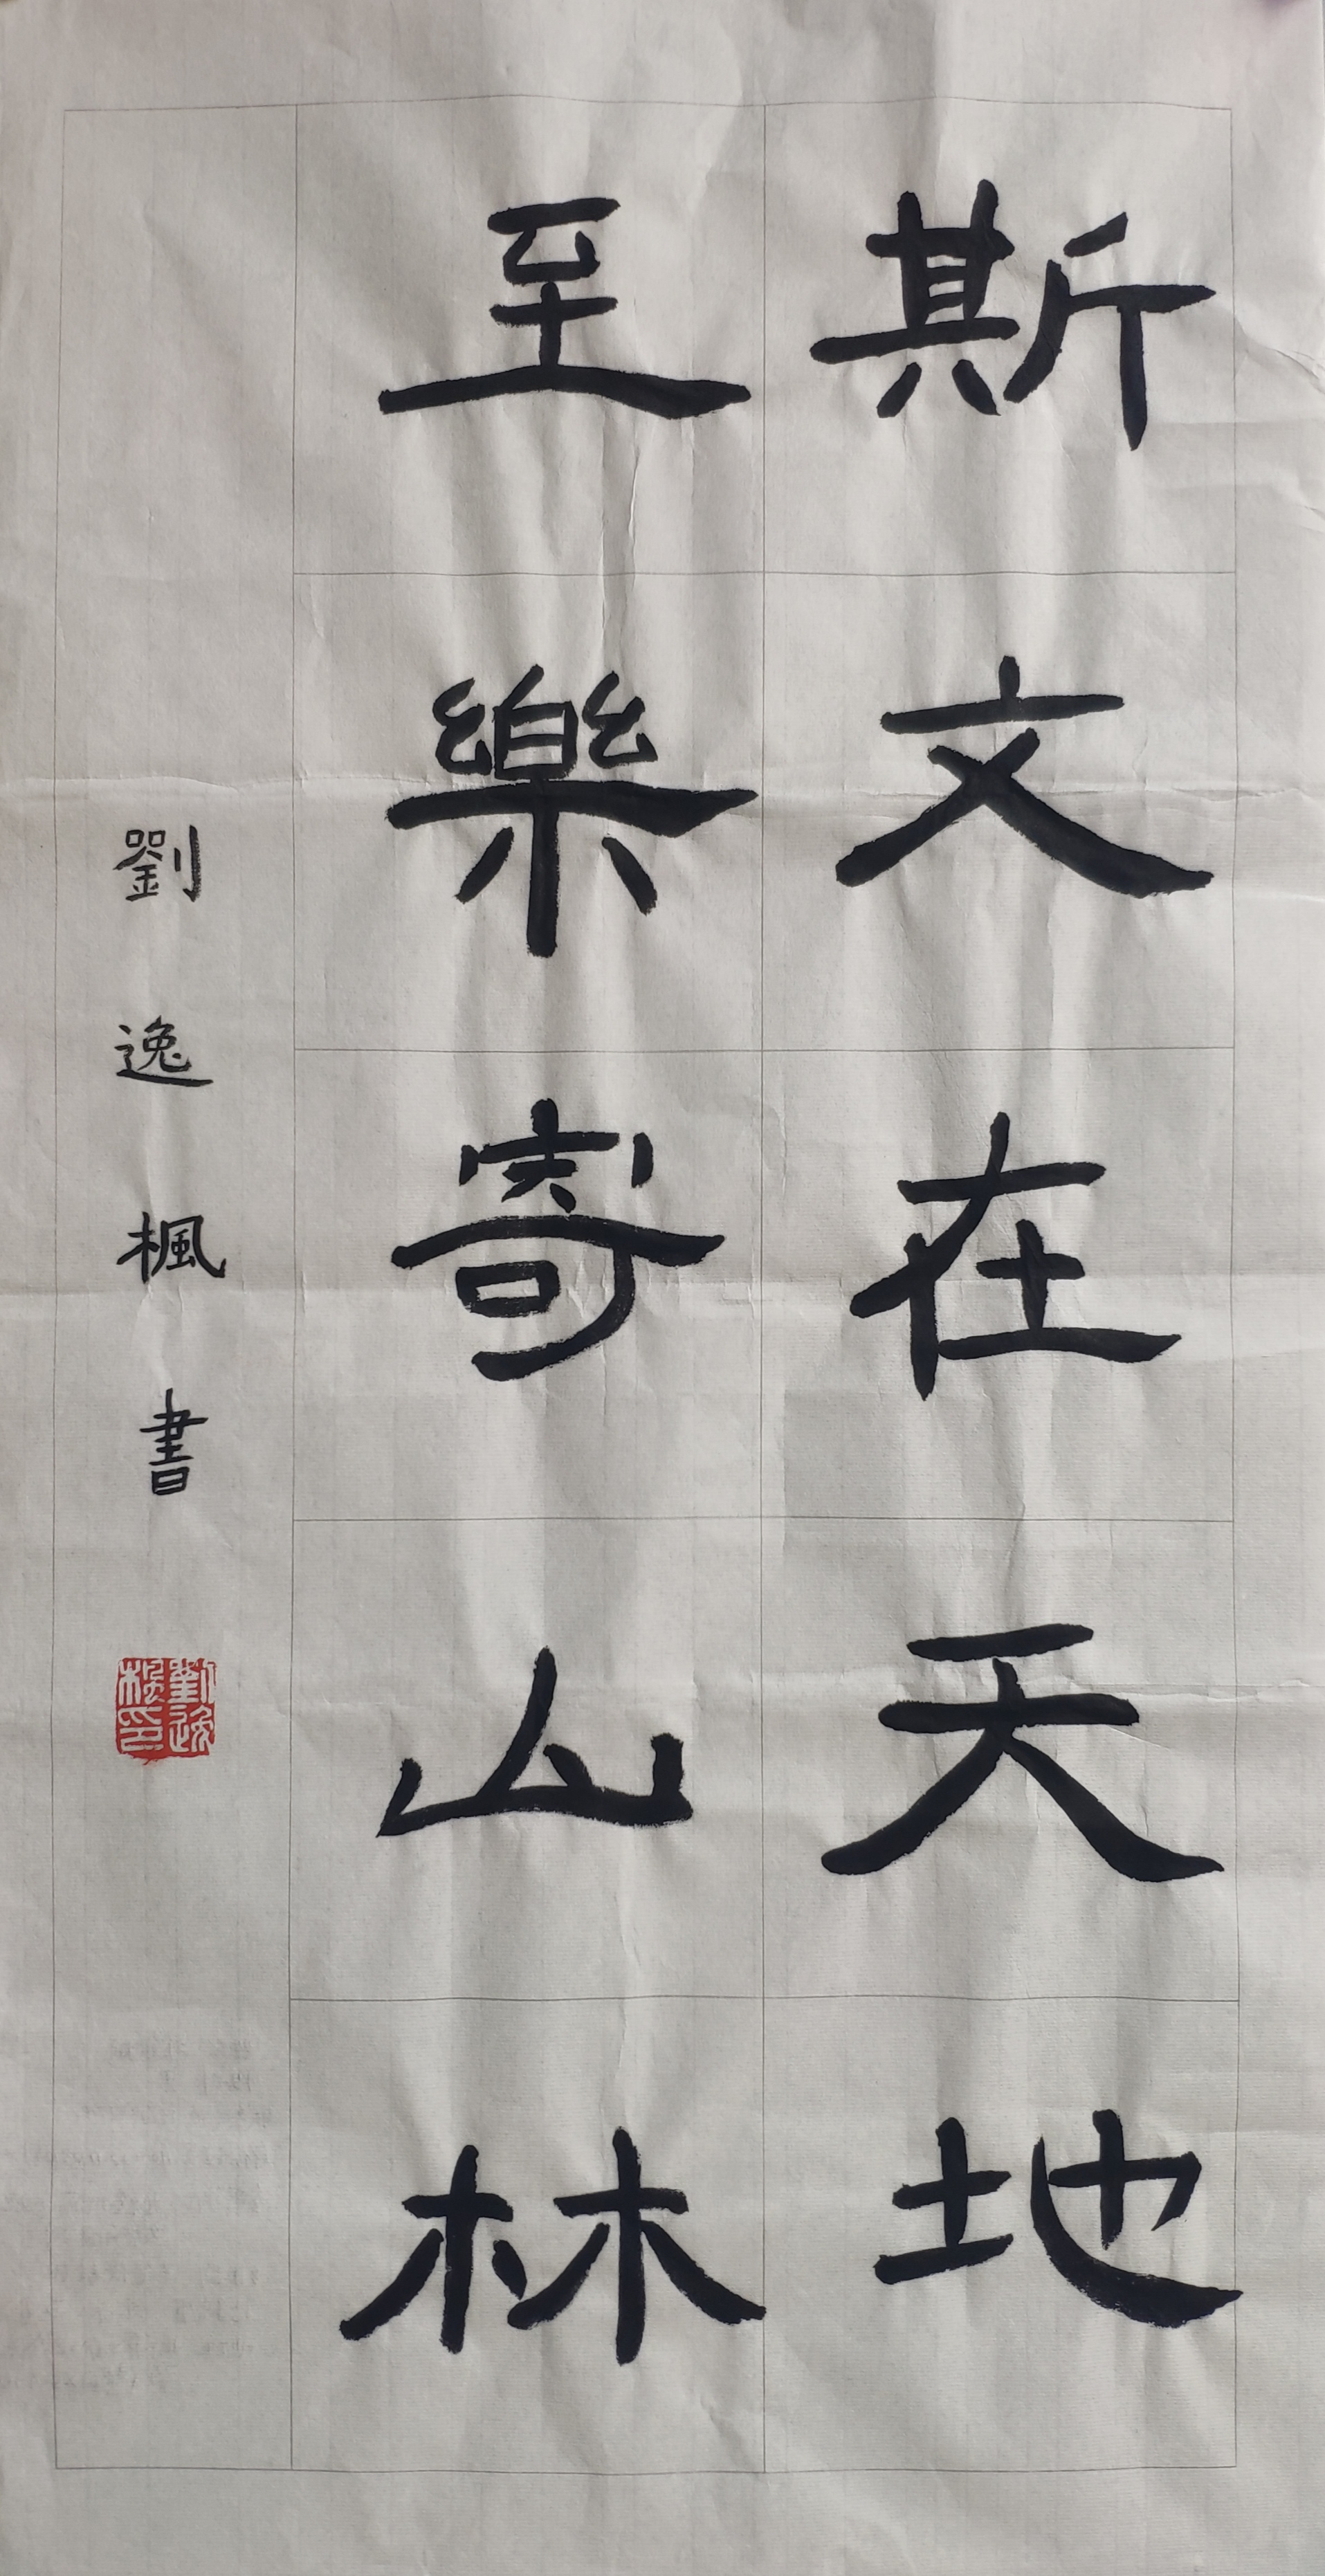 斯文在天地
至樂寄山林
劉逸楓書
劉逸楓印